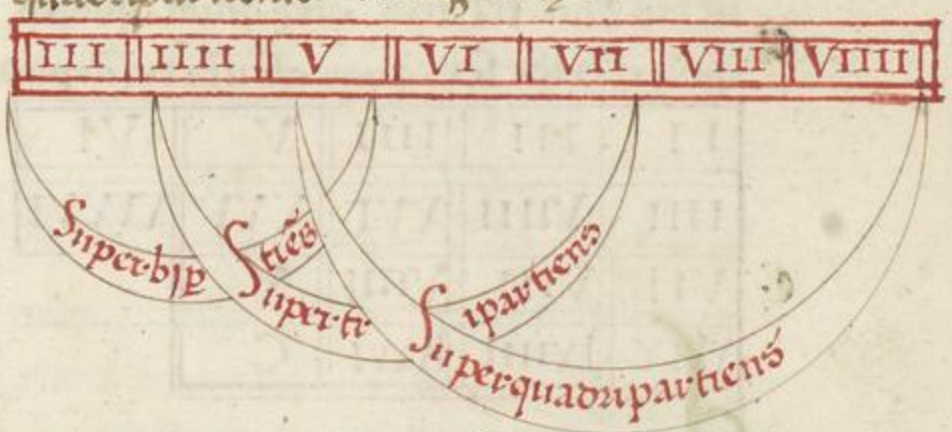 III IIII V VI VII VIII VIIII
Superbip tiēs
Supertr ipartiens
Superquadripartiens